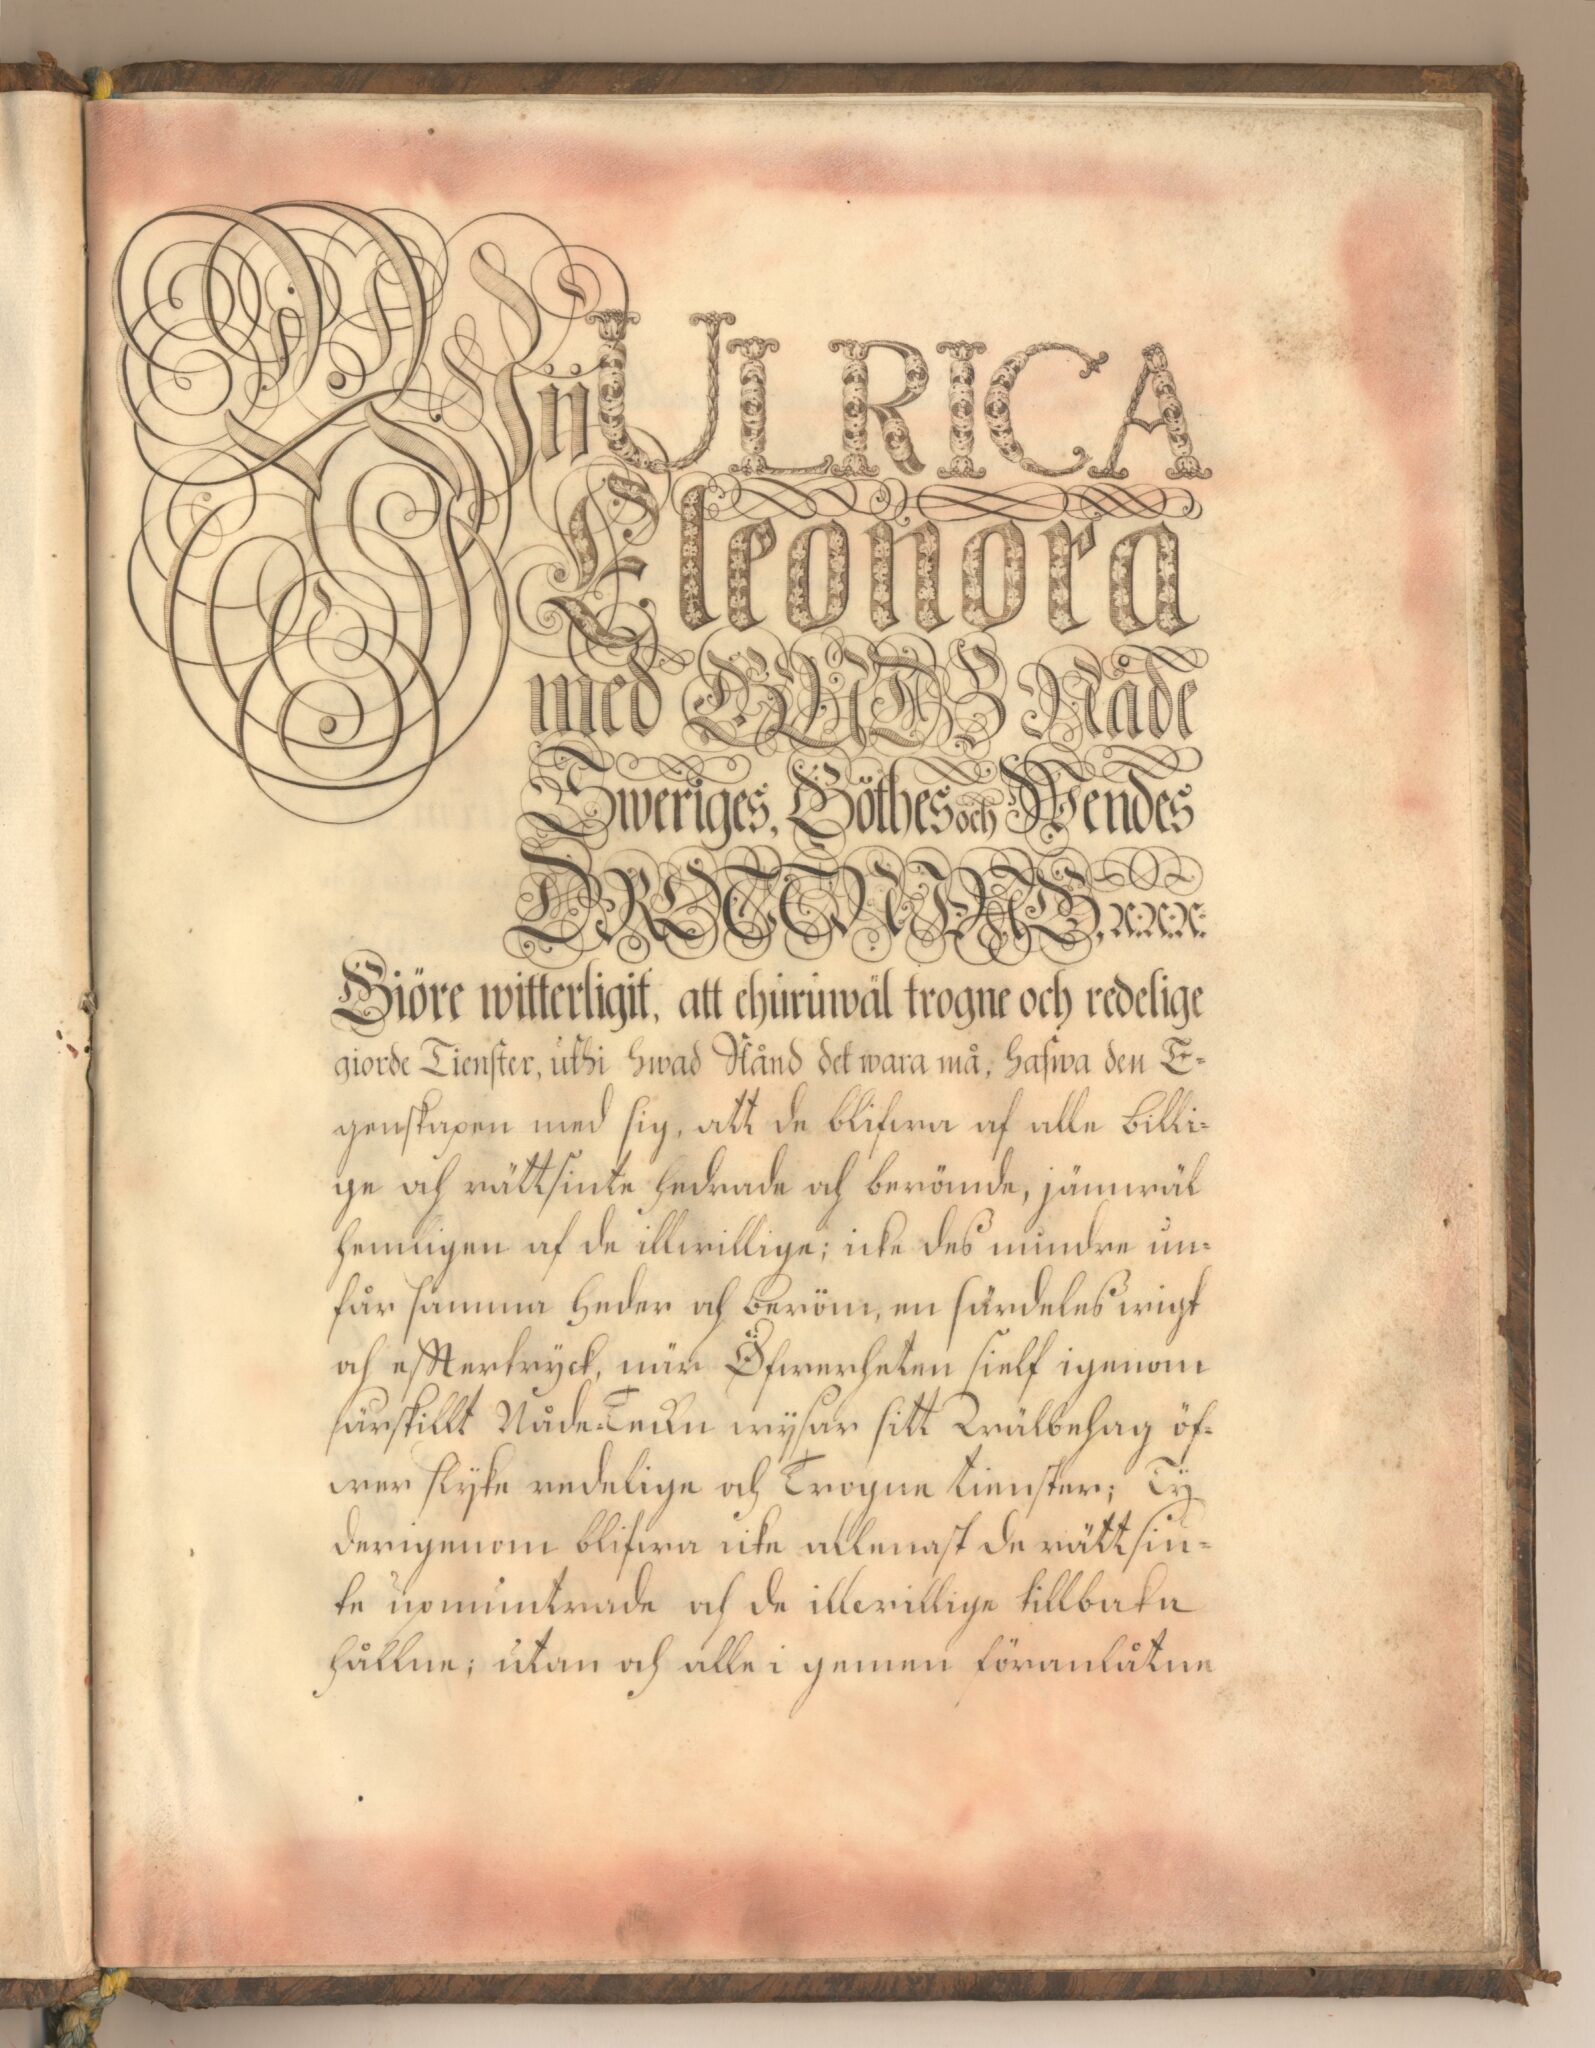 Wij ULRICA
Eleonora
med GUDS Nåde
Sweriges, Göthes och Wendes
DROTNING, &c. &c. &c.
Giöre witterligit, att ehuruwäl trogne och redelige
giorde Tienster, uthi hwad Stånd det wara må, hafwa den E-
genskapen med sig, att de blifwa af alle billi-
ge och rättsinte hedrade och berömde, jämwäl
hemligen af de illwillige; icke des mindre un-
får samma heder och beröm, en särdeles wigt
och efftertryck, när Öfwerheten sielf igenom
särskillt Nåde-Teckn wysar sitt Wälbehag öf-
wer slyke redelige och Trogne tienster; Ty
derigenom blifwa icke allenast de rättsin-
te upmuntrade och de illwillige tillbaka
hållne; utan och alle i gemen föranlåtne